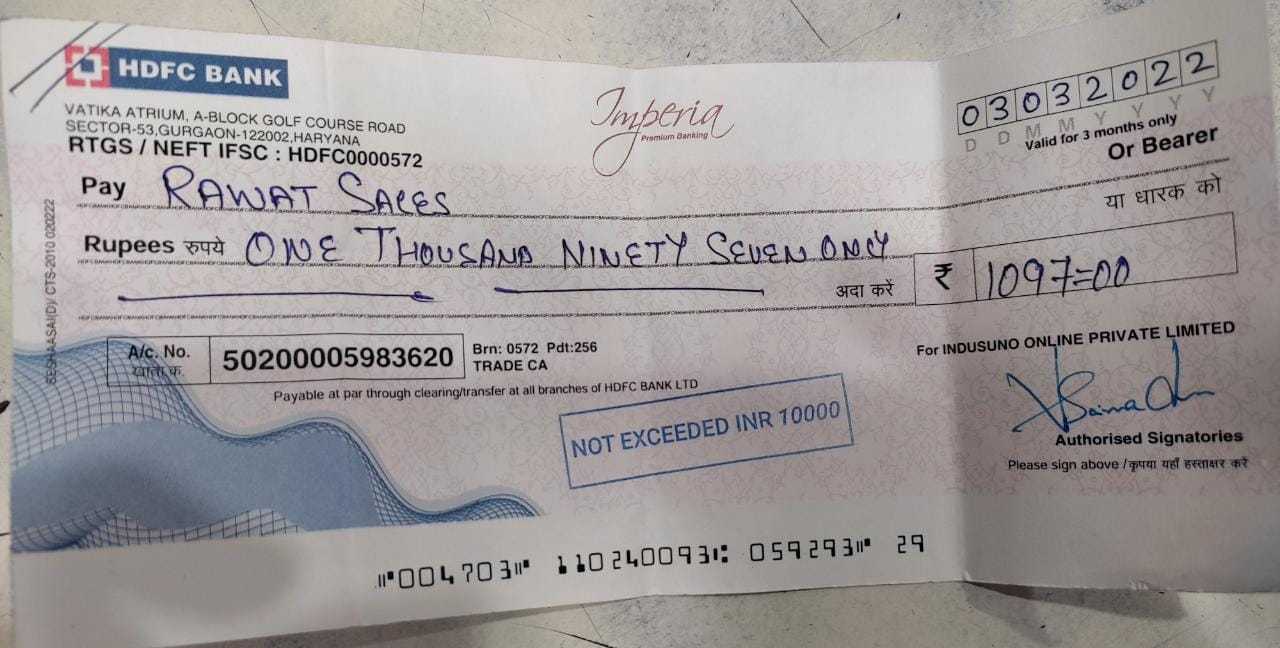 HDFC BANK
VATIKA ATRIUM, A-BLOCK GOLF COURSE ROAD
SECTOR-53,GURGAON-122002,HARYANA
RTGS / NEFT IFSC : HDFC0000572
Imperia
Premium Banking
03032022
D D M M Y Y Y Y
Valid for 3 months only
Pay RAWAT SALES Or Bearer
या धारक को
Rupees रुपये ONE THOUSAND NINETY SEVEN ONLY
अदा करें ₹ 1097=00
A/c. No. 50200005983620 Brn: 0572 Pdt:256
खाता क्र. TRADE CA
Payable at par through clearing/transfer at all branches of HDFC BANK LTD
NOT EXCEEDED INR 10000
For INDUSUNO ONLINE PRIVATE LIMITED
Authorised Signatories
Please sign above /कृपया यहाँ हस्ताक्षर करें
⑈004703⑈ 110240093⑆ 059293⑈ 29